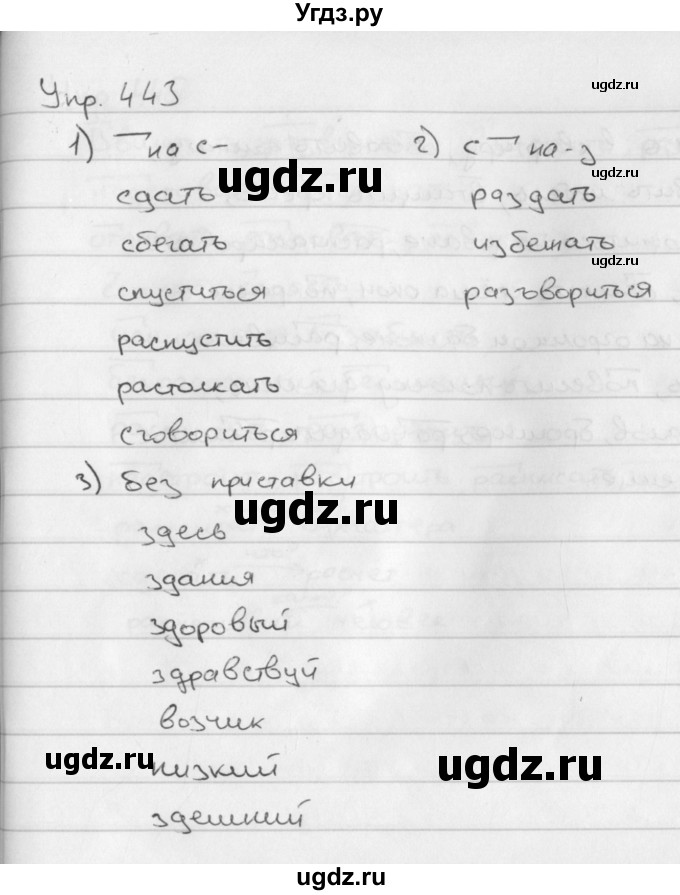 Угдз.ру
ugdz.ru
Упр. 443
1) ¬ на с-
2) с ¬ на -з
ugdz.ru
сдать
раздать
сбегать
избежать
ugdz.ru
спуститься
разъвориться
распустить
ugdz.ru
растолкать
сговориться
3) без приставки
ugdz.ru
здесь
здания
здоровый
здравствуй
возчик
ugdz.ru
низкий
ugdz.ru
здешний
ugdz.ru